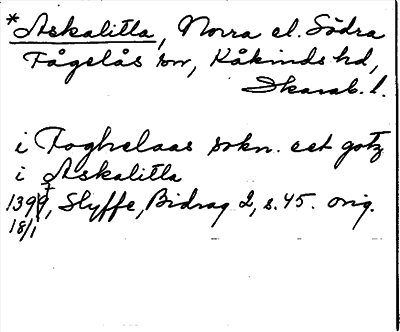 *Askalitla, Norra el. Södra
Fågelås sn, Kåkinds hd,
Skarab. l.
i Foghelaas sokn. eet gotz
i Askalitla
1399, Styffe, Bidrag 2, s. 45. orig.
18/1